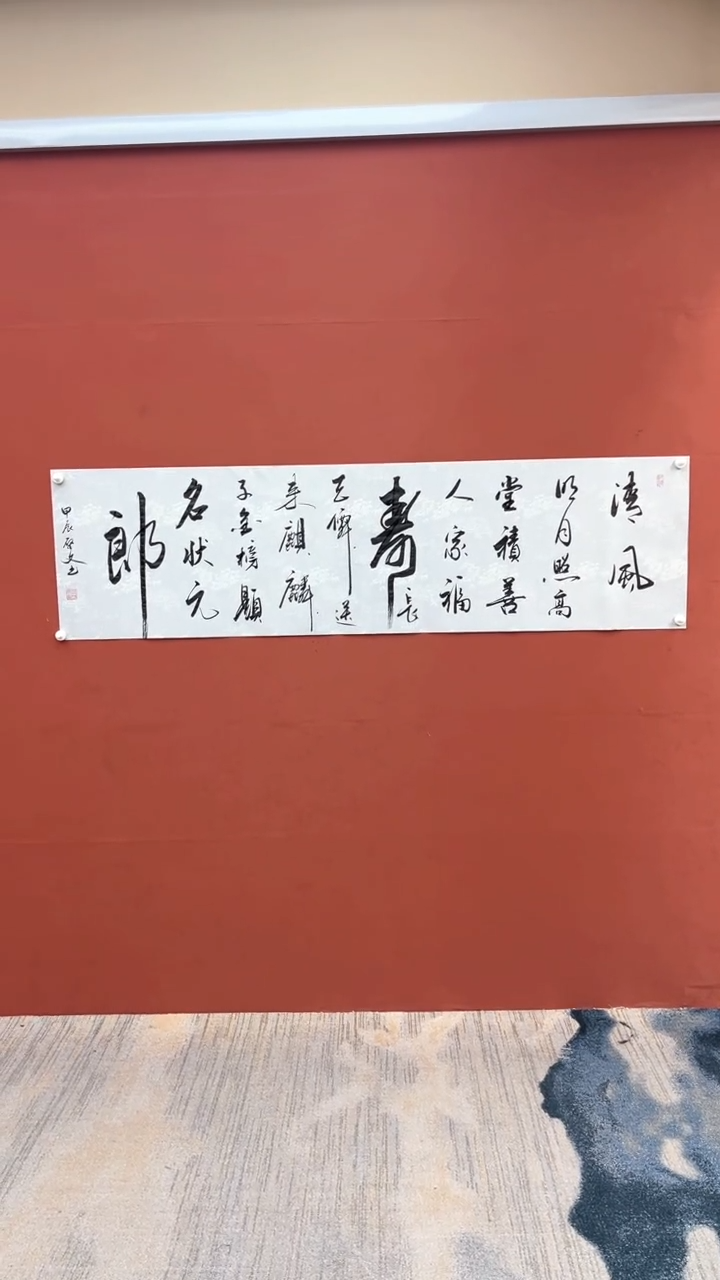 清風
明月照高
堂積善
人家福
壽長
天送
来麒麟
子金榜題
名状元
郎
甲辰